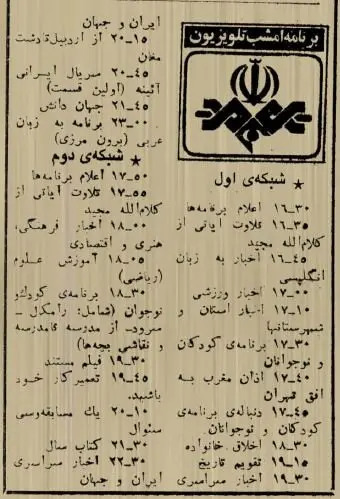 برنامه امشب تلویزیون
★ شبکه‌ی اول
۱۶-۳۰ اعلام برنامه‌ها
۱۶-۳۵ تلاوت آیاتی از
کلام‌الله مجید
۱۶-۴۵ اخبار به زبان
انگلیسی
۱۷-۰۰ اخبار ورزشی
۱۷-۱۰ اخبار استان و
شهرستانها
۱۷-۳۰ برنامه‌ی کودکان
و نوجوانان
۱۷-۴۰ اذان مغرب به
افق تهران
۱۷-۴۵ دنباله‌ی برنامه‌ی
کودکان و نوجوانان
۱۸-۳۰ اخلاق خانواده
۱۹-۱۵ تقویم تاریخ
۱۹-۳۰ اخبار سراسری
ایران و جهان
۲۰-۱۵ از اردبیل تا دشت
مغان
۲۰-۴۵ سریال ایرانی
آئینه (اولین قسمت)
۲۱-۴۵ جهان دانش
۲۳-۰۰ برنامه به زبان
عربی (برون مرزی)
★ شبکه‌ی دوم
۱۷-۵۰ اعلام برنامه‌ها
۱۷-۵۵ تلاوت آیاتی از
کلام‌الله مجید
۱۸-۰۰ اخبار فرهنگی،
هنری و اقتصادی
۱۸-۰۵ آموزش علوم
(ریاضی)
۱۸-۳۰ برنامه‌ی کودک و
نوجوان (شامل: رامکال -
سرود- از مدرسه تا مدرسه
و نقاشی بچه‌ها)
۱۹-۳۰ فیلم مستند
۱۹-۴۵ تعمیرکار خود
باشید.
۲۰-۱۰ یک مسابقه و سی
سئوال
۲۱-۳۰ کتاب سال
۲۲-۳۰ اخبار سراسری
ایران و جهان